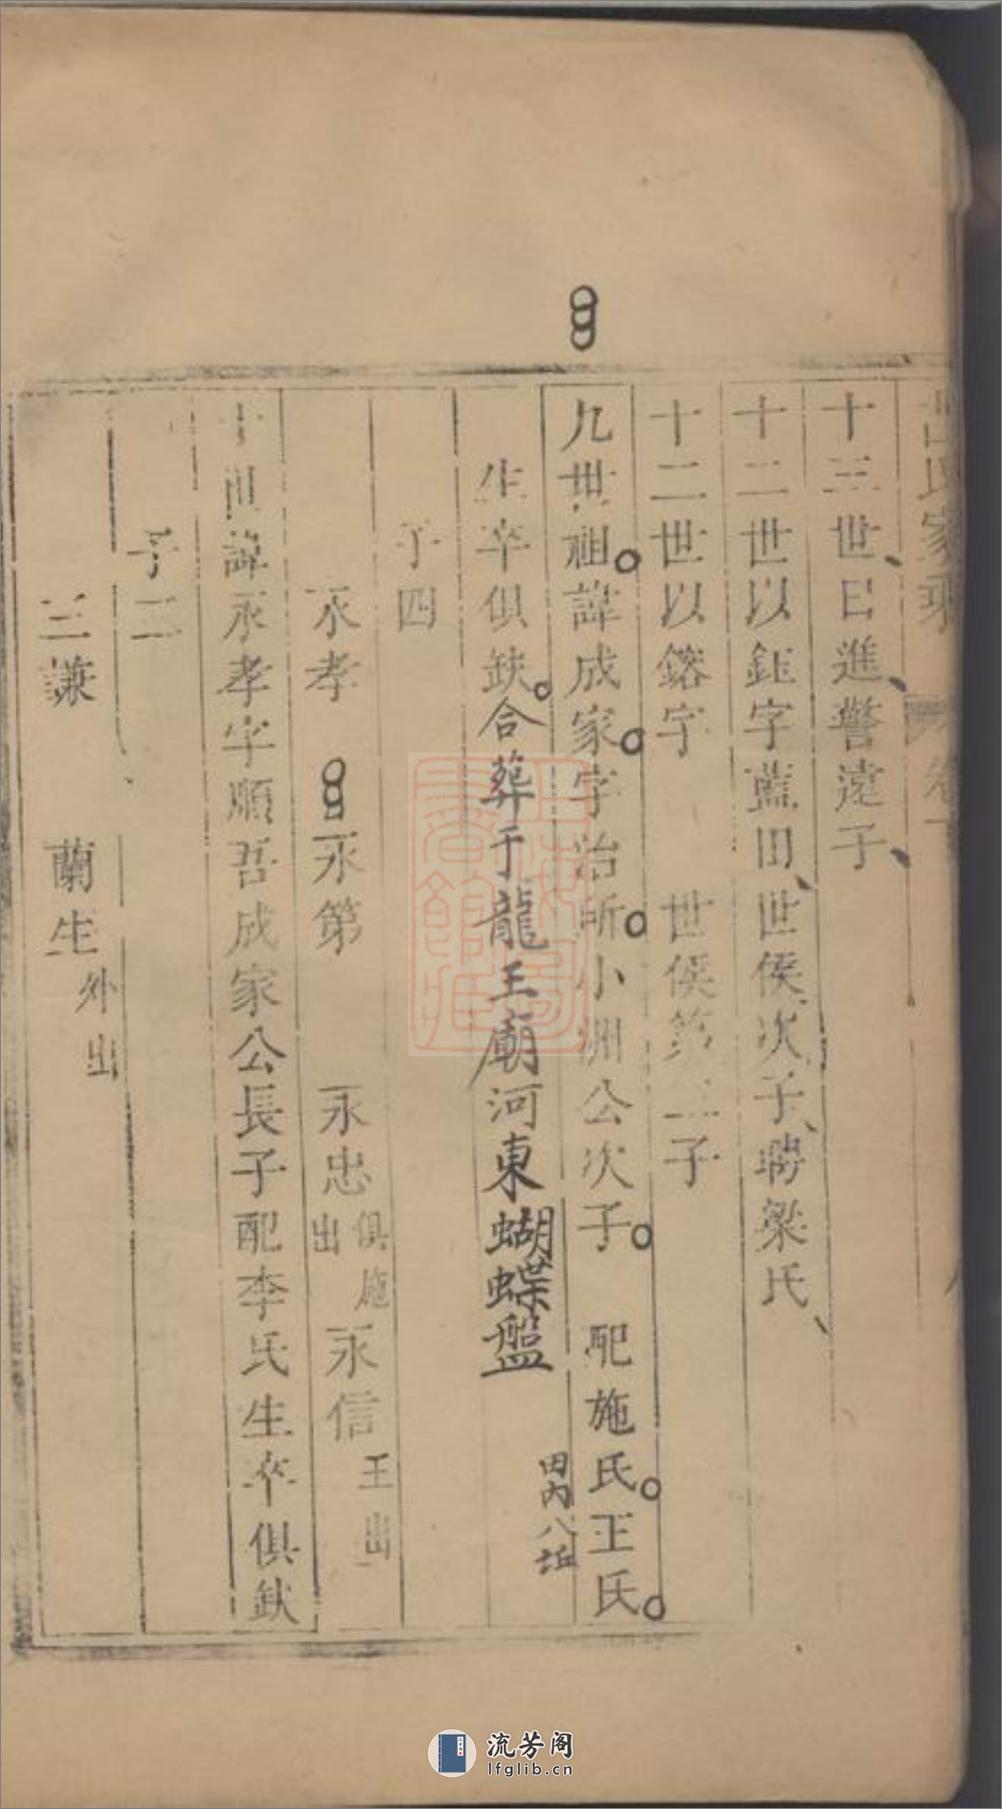 呂氏家乘 卷下
十三世曰進警遠子
十二世以鈺字藍田世侯次子聘梁氏
十二世以鎔字 世侯第三子
九世祖諱成家字治所小洲公次子 配施氏王氏
生卒俱缺合葬于龍王廟河東蝴蝶盤
田內八坵
子四
永孝 永第 永忠俱施出 永信王出
十世諱永孝字順吾成家公長子配李氏生卒俱缺
子二
三謙 蘭生外出
流芳阁
lfglib.cn